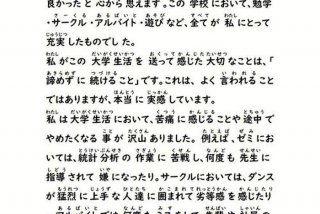 良かったと心から思えます。この学校において、勉学
・サークル・アルバイト・遊びなど、全てが私にとって
充実したものでした。
私がこの大学生活を送って感じた大切なことは、「
諦めずに続けること」です。これは、よく言われること
ではありますが、本当に実感しています。
私は大学生活において、苦痛に感じることや途中で
やめたくなる事が沢山ありました。例えば、ゼミにお
いては、統計分析の作業に苦戦し、何度も先生に
指導されて嫌になったり。サークルにおいては、ダンス
が猛烈に上手な人達に囲まれて劣等感を感じたり